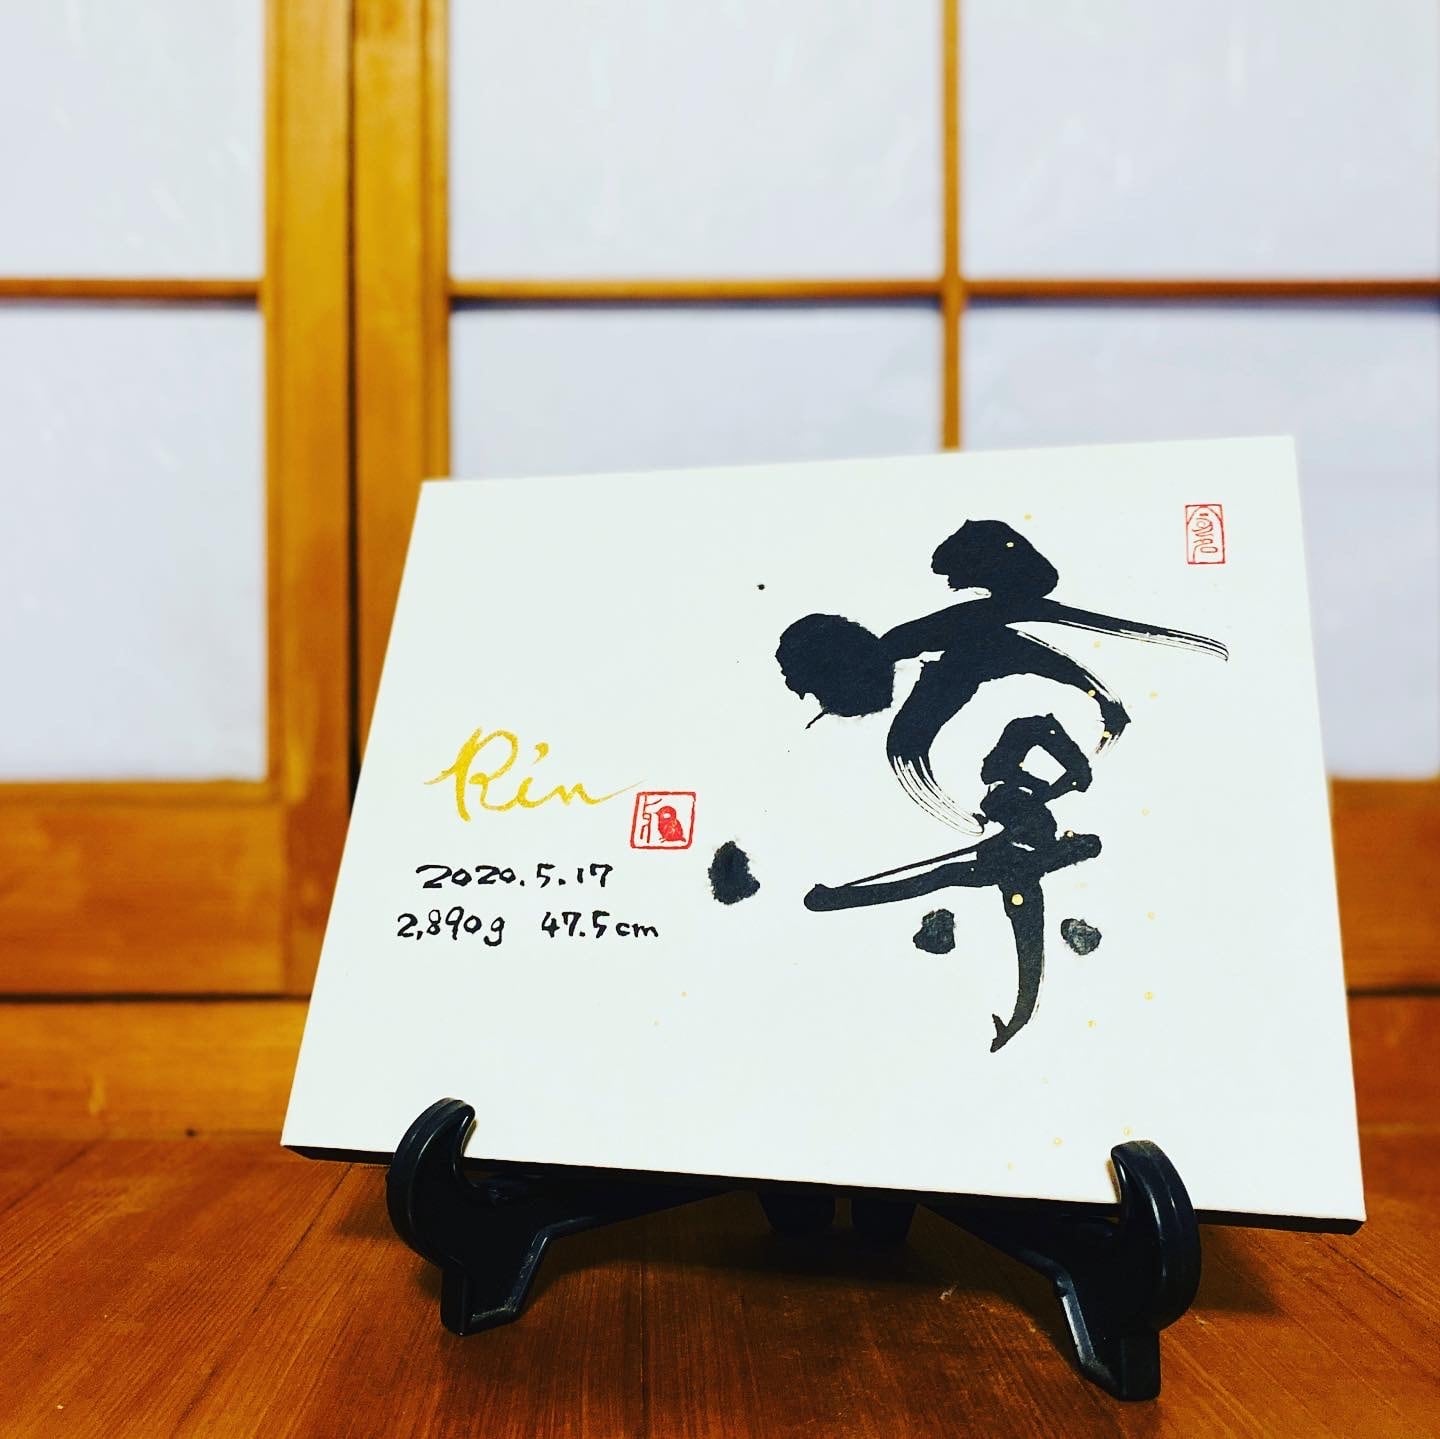 凛
Rin
2020.5.17
2,890g 47.5cm